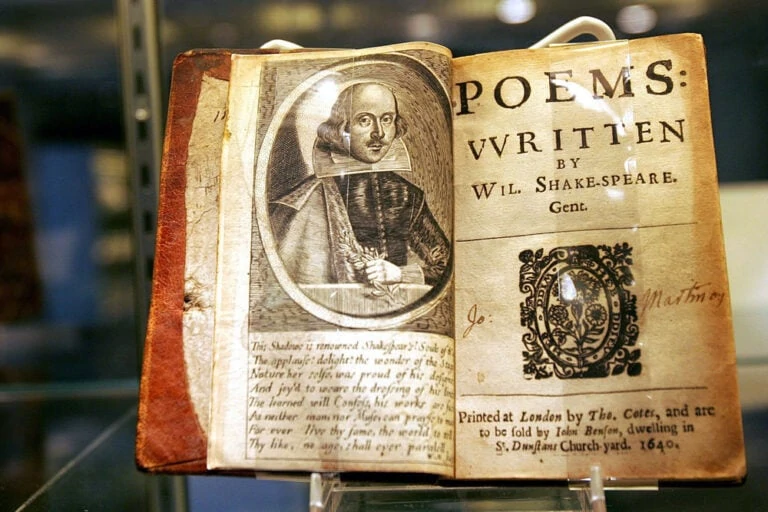 This Shadowe is renowned Shakespear's? Soule of
The applause? delight? the wonder of the
Nature her selfe, was proud of his
And joy'd to weare the dressing of his
The learned will Confess, his works are
As neither man, nor Muse, can prayse to
For ever live thy fame, the world to
Thy like, no age, shall ever paralell
POEMS:
VVRITTEN
BY
WIL. SHAKE-SPEARE.
Gent.
Jo: Martin
Printed at London by Tho. Cotes, and are
to be sold by Iohn Benson, dwelling in
St. Dunstans Church-yard. 1640.